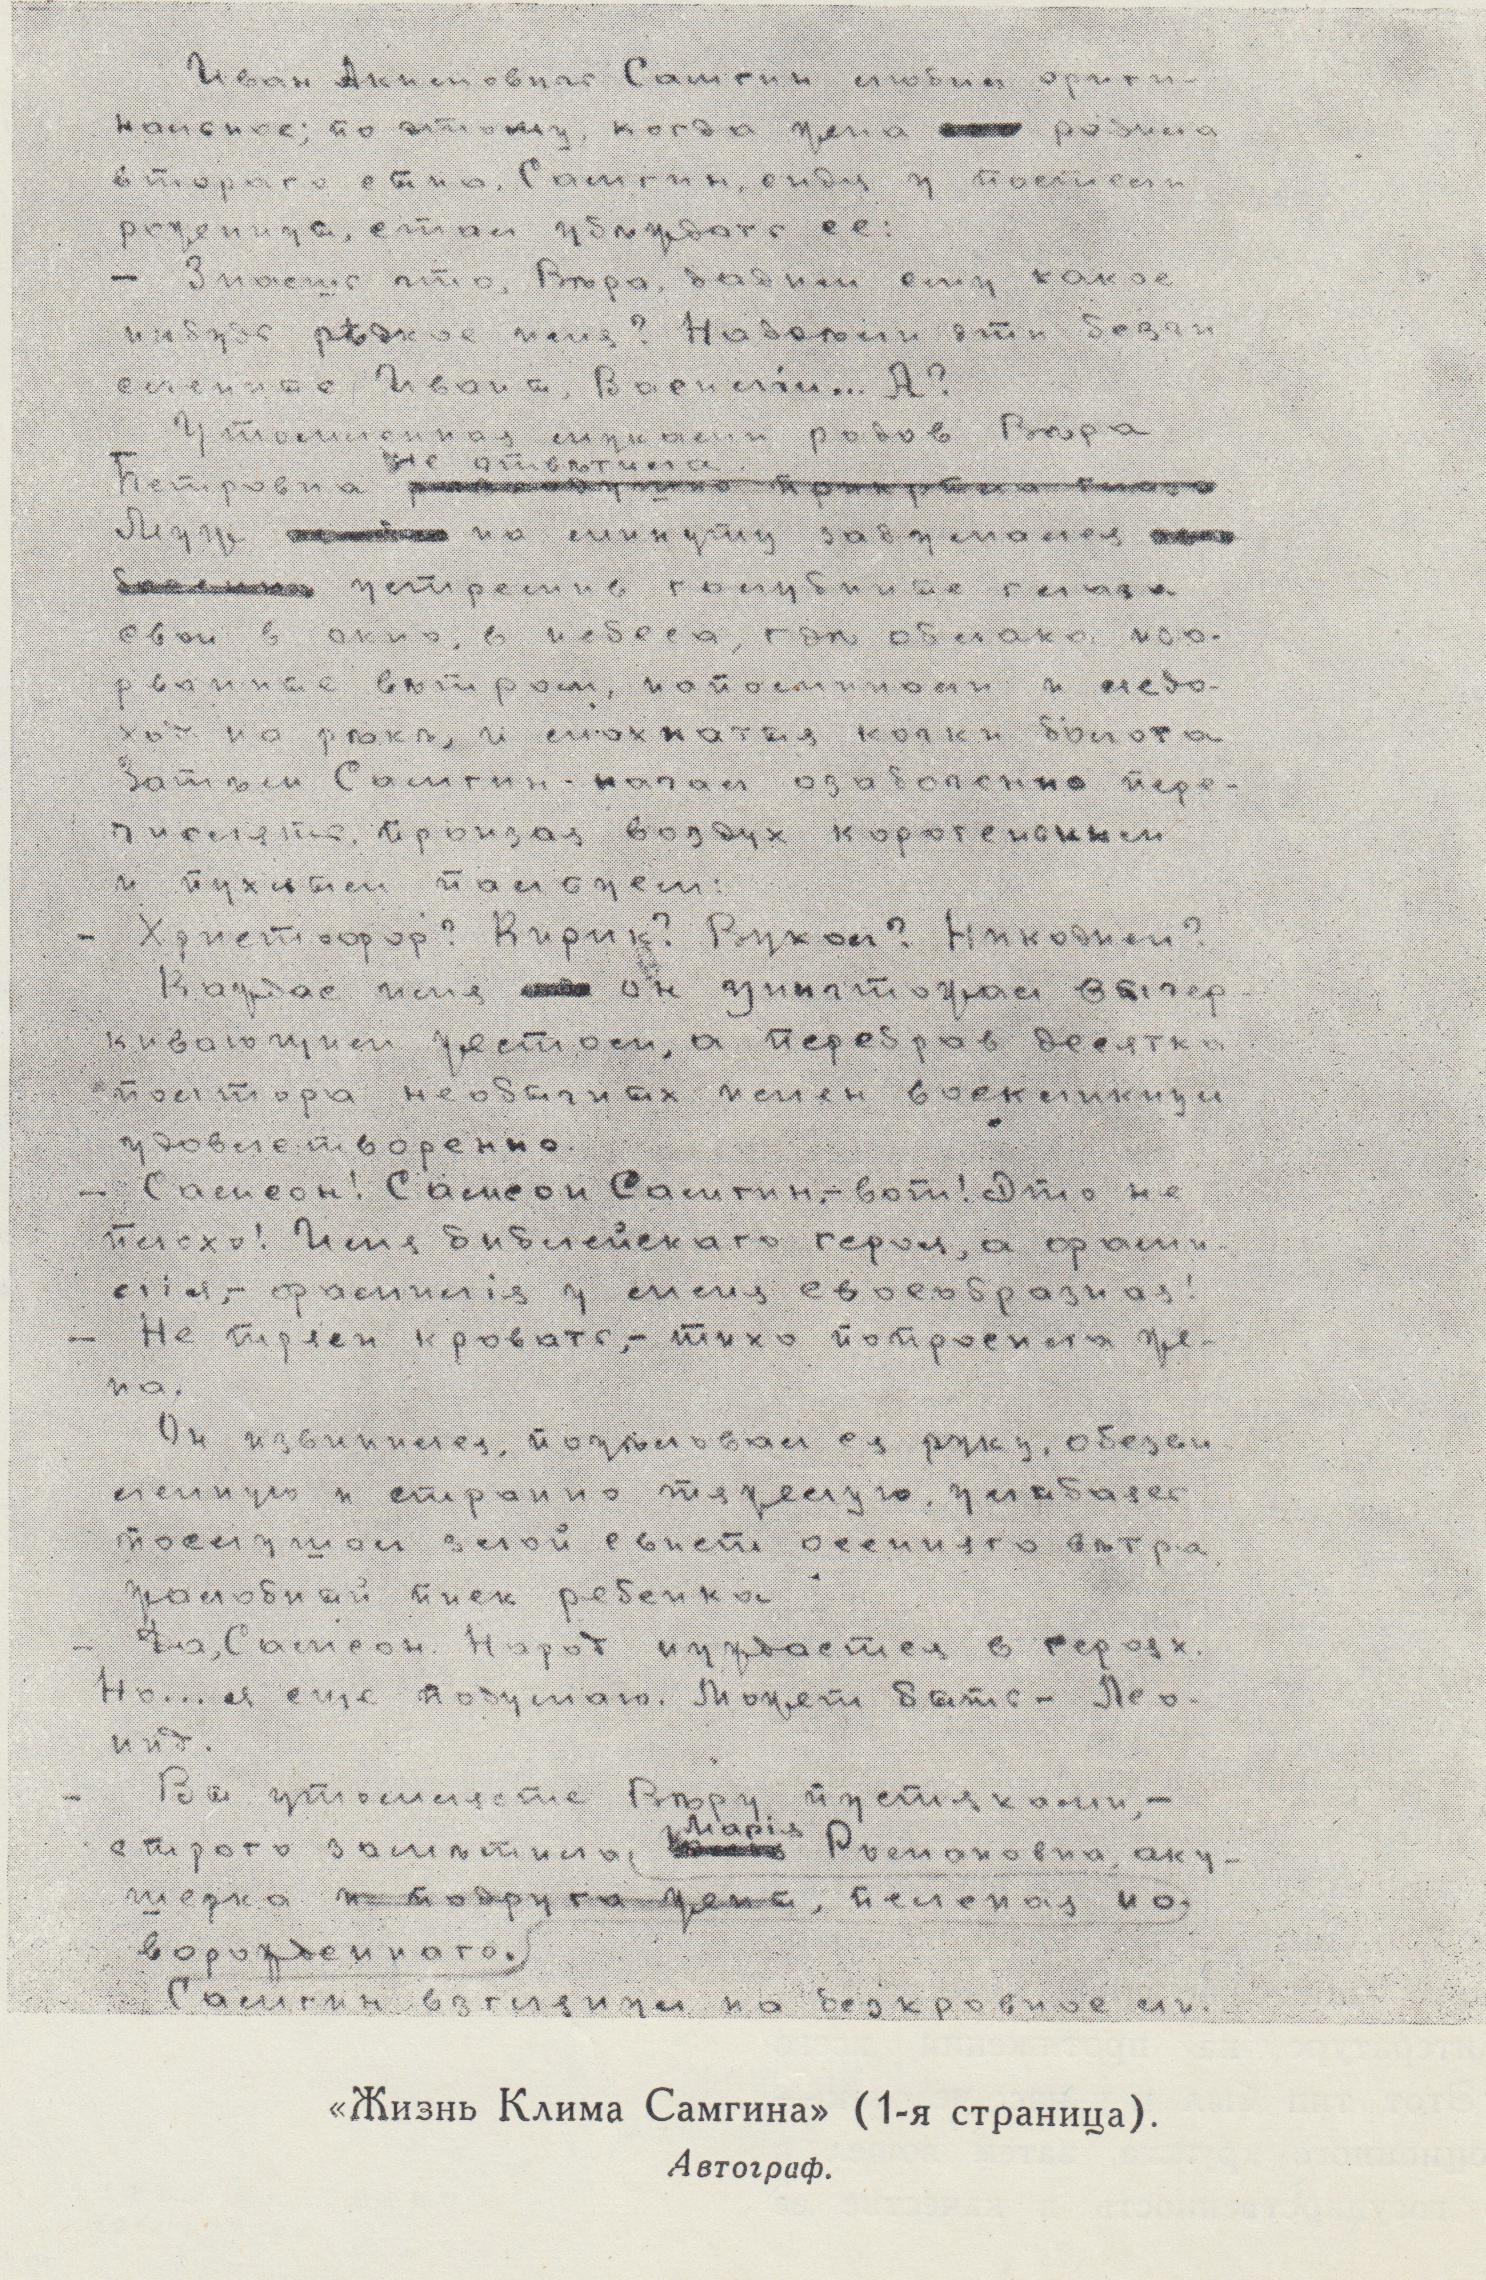 Иван Акимович Самгин любил ориги-
нальное; по этому, когда жена родила
второго сына, Самгин, сидя у постели
роженицы, стал убѣждать ее:
— Знаешь что, Вѣра, дадим ему какое
нибудь рѣдкое имя? Надоѣли эти безчи
сленные Иваны, Василіи... А?
Утомленная муками родов Вѣра
не отвѣтила.
Петровна равнодушно прикрыла глаза
Муж на минуту задумался
устремив голубые глаза
свои в окно, в небеса, гдѣ облака, изо-
рванные вѣтром, напоминали и ледо-
ход на рѣкѣ, и мохнатыя кочки болота
Затѣм Самгин начал озабоченно пере-
числять, пронзая воздух коротеньким
и пухлым пальцем:
— Христофор? Кирик? Вукол? Никодим?
Каждое имя он уничтожал вычер-
кивающим жестом, а перебрав десятка
полтора необычных имен воскликнул
удовлетворенно.
— Самсон! Самсон Самгин,— вот! Это не
плохо! Имя библейскаго героя, а фами-
лія,— фамилія у меня своеобразная!
— Не тряси кровать,— тихо попросила же-
на.
Он извинился, поцѣловал ея руку, обезси
ленную и странно тяжелую, улыбаясь
послушал злой свист осенняго вѣтра,
жалобный писк ребенка
— Да, Самсон. Народ нуждается в героях.
Но... я еще подумаю. Может быть — Лео-
нид.
— Вы утомляете Вѣру пустяками,—
Марія
строго замѣтила, Романовна, аку-
шерка и подруга жены, пеленая но
ворожденнаго.
Самгин взглянул на безкровное ли-
«Жизнь Клима Самгина» (1-я страница).
Автограф.